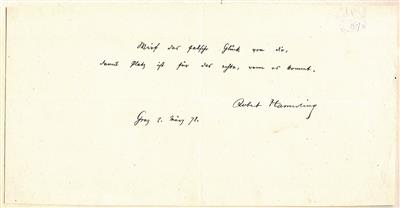 Wirf das falsche Glück von dir,
damit Platz ist für das echte, wenn es kommt.
Robert Hamerling
Graz 2. März 78.